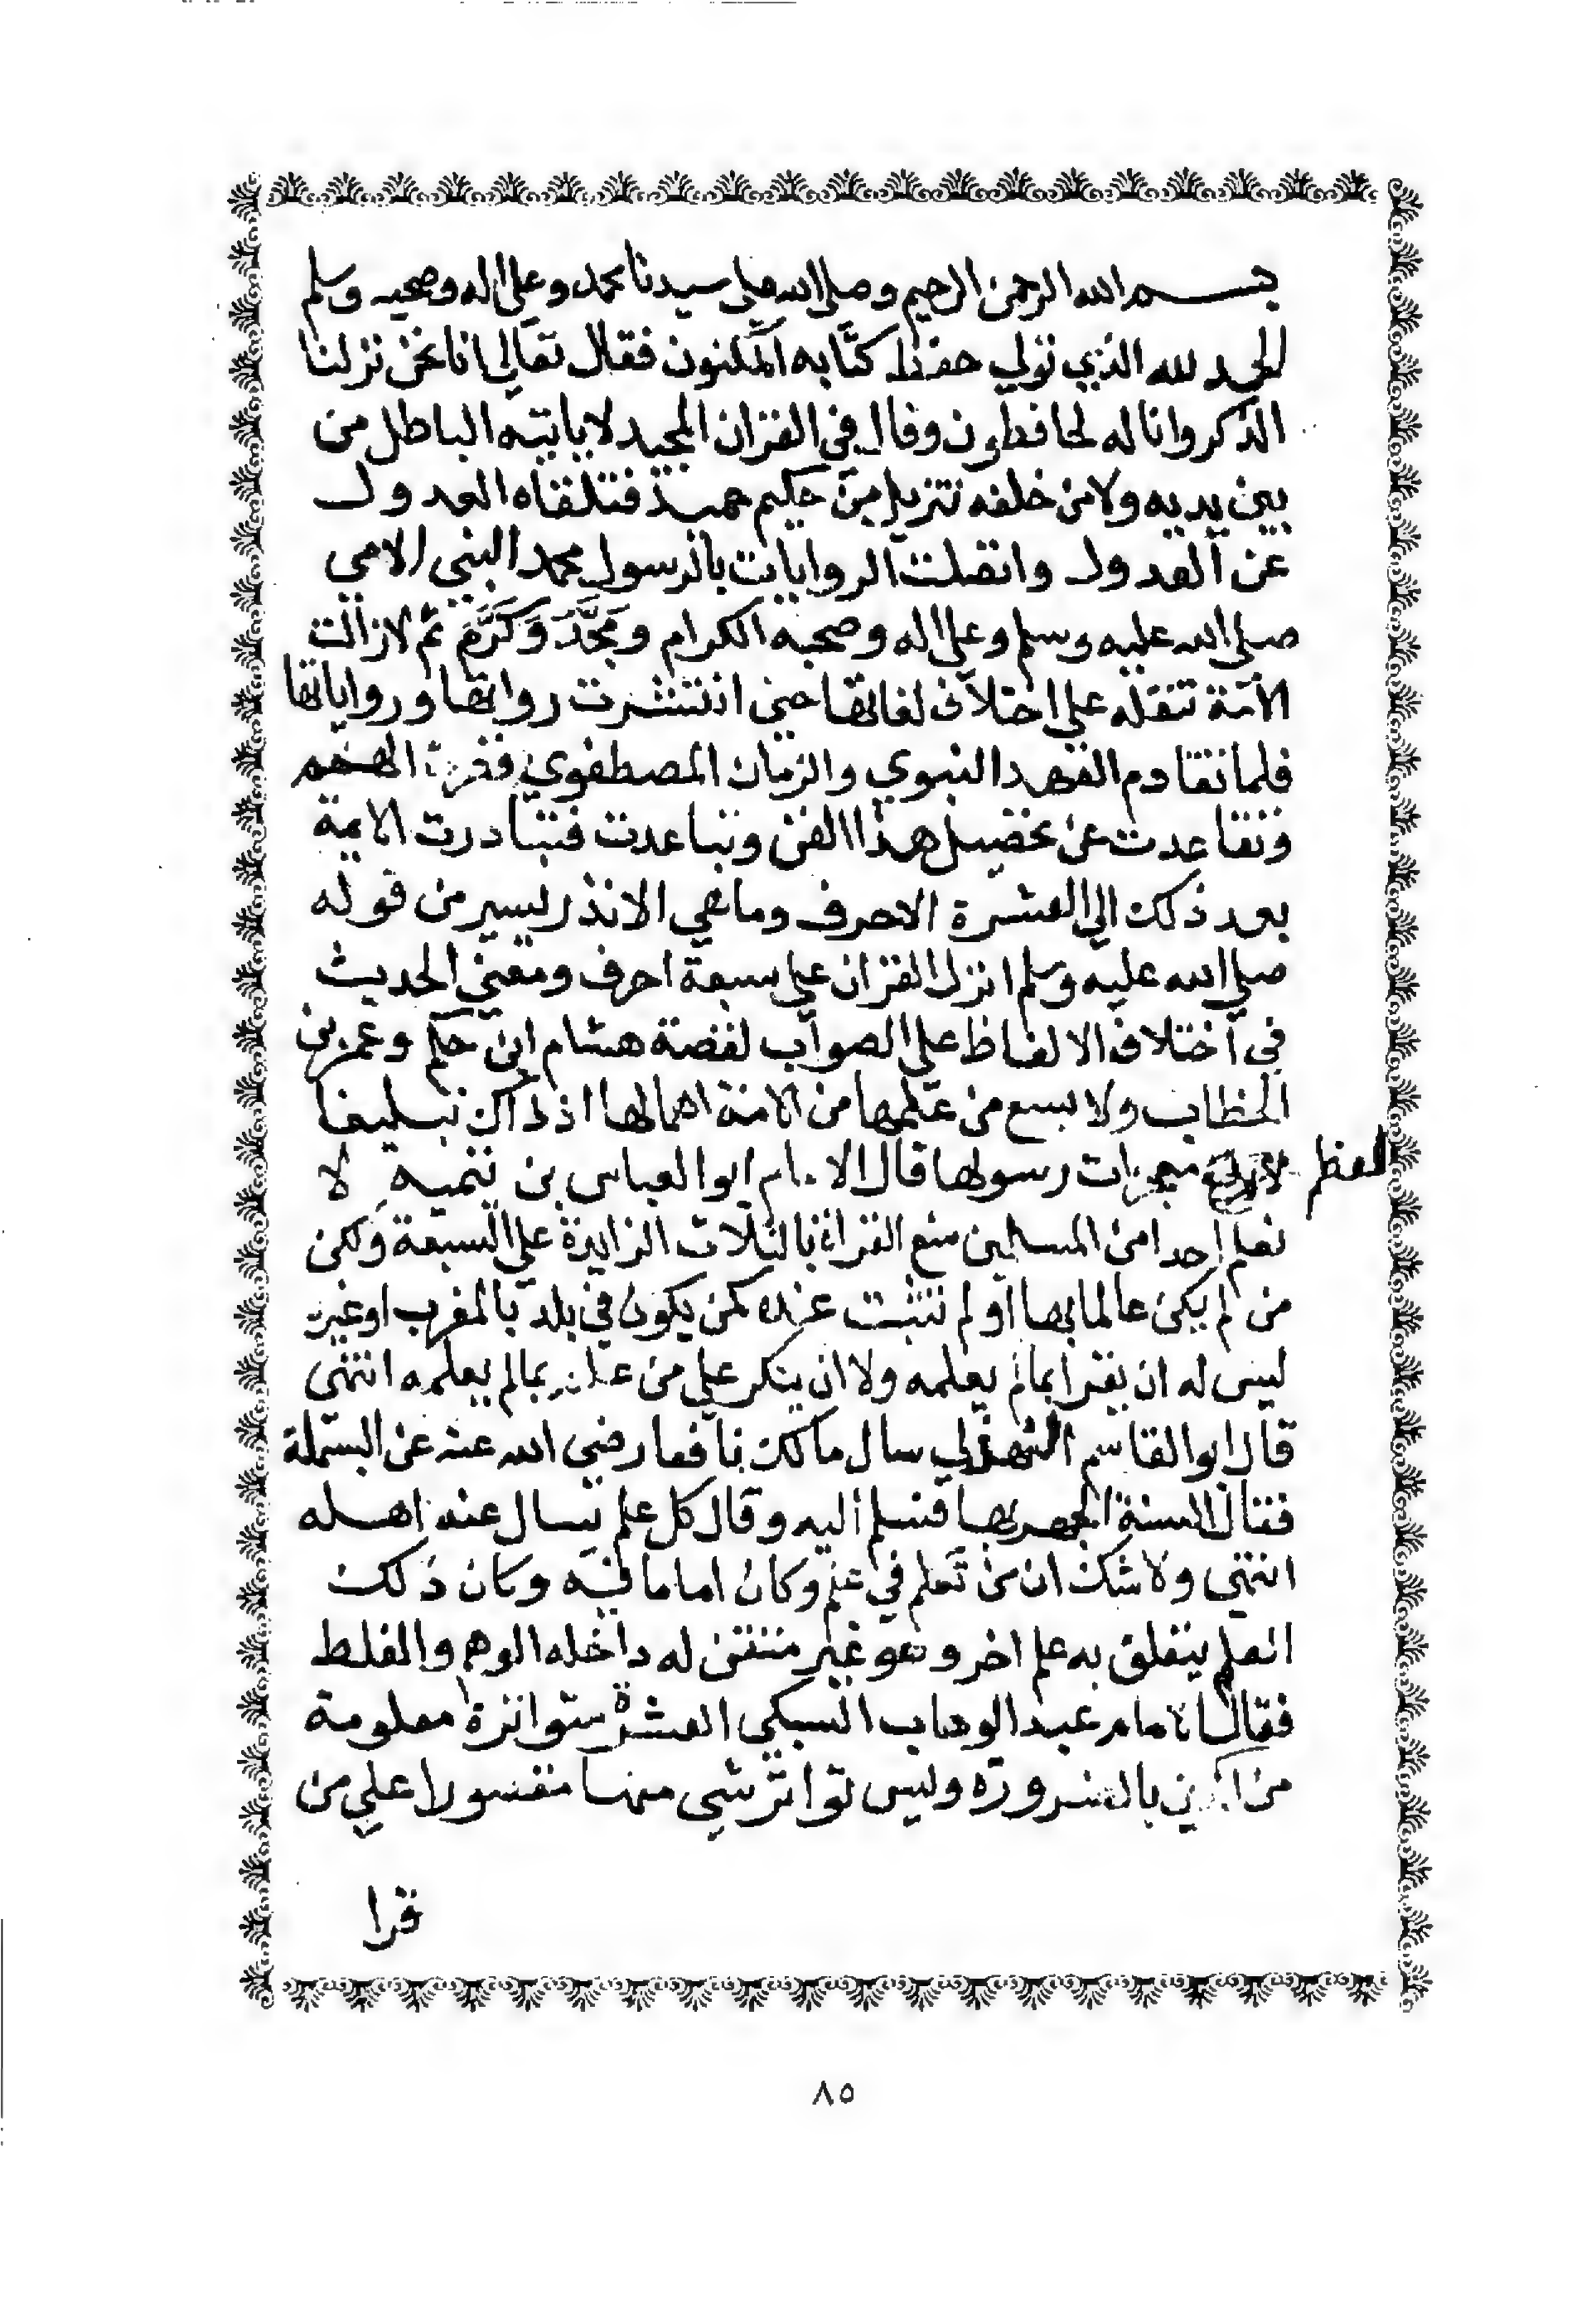 بسم الله الرحمن الرحيم وصلى الله على سيدنا محمد وعلى اله وصحبه وسلم
الحمد لله الذي تولي حفظ كتابه المكنون فقال تعالي انا نحن نزلنا
الذكر وانا له لحافظون وقال في القران المجيد لا ياتيه الباطل من
بين يديه ولا من خلفه تنزيل من حكيم حميد فتلقاه العدول
عن العدول واتصلت الروايات بالرسول محمد النبي الامي
صلي الله عليه وسلم وعلي اله وصحبه الكرام ومَجَّدَ وَكَرَّمَ ثم لازالت
الامة تنقله علي اختلاف لغاتها حتي انتشرت رواتها ورواياتها
فلما تقادم العهد النبوي والزمان المصطفوي الهمم
وتقاعدت عن تحصيل هذا الفن وتباعدت فتبادرت الايمة
بعد ذلك الي العشرة الاحرف وما هي الا نذر يسير من قوله
صلي الله عليه وسلم انزل القران علي سبعة احرف ومعني الحديث
في اختلاف الالفاظ علي الصواب لقصة هشام ابن حكم وعمر بن
الخطاب ولا يسع من علمها من الامة اهمالها اذ ذاك تبليغا
لاعظم معجزات رسولها قال الامام ابو العباس بن تيمية لا
نعلم احدا من المسلمين منع القراة بالثلاث الزايدة علي السبعة ولكن
من لم يكن عالما بها او لم تثبت عنده كمن يكون في بلد بالمغرب او غيره
ليس له ان يقرا بما لم يعلمه ولا ان ينكر علي من علم بما لم يعلمه انتهى
قال ابو القاسم الهذلي سال مالك نافعا رضي الله عنه عن البسملة
فقال السنة الجهر بها فسلم اليه وقال كل علم يسال عنه اهله
انتهي ولا شك ان من تعلم في علم وكان اماما فيه وكان ذلك
العلم يتعلق به علم اخر وهو غير متقن له داخله الوهم والغلط
فقال الامام عبد الوهاب السبكي العشرة متواترة معلومة
من الدين بالضرورة وليس تواتر شي منها مقسورا علي من
قرا
٨٥